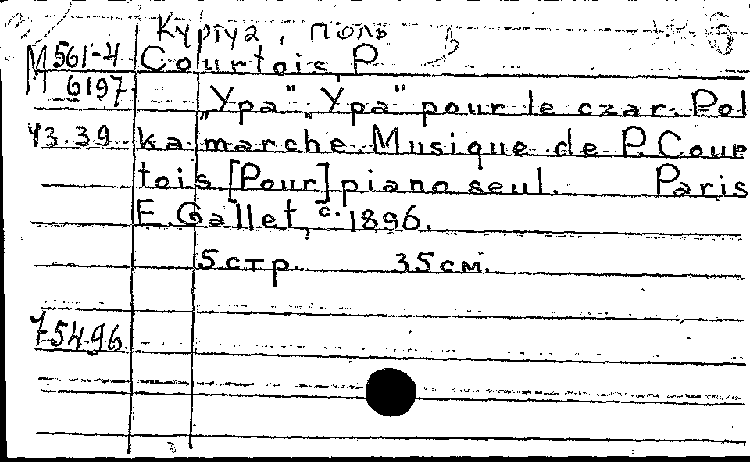 Куртуа, Поль
М 561-4 Courtois, P.
6197
„Ура", „Ура" pour le czar. Pol
43.39 ka marche. Musique de P. Cour
tois [Pour] piano seul. Paris
E. Gallet, c. 1896.
5 стр. 35 см.
75496